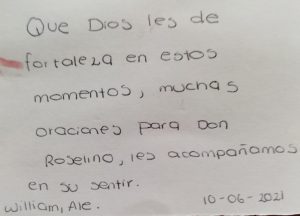 Que Dios les de
fortaleza en estos
momentos, muchas
oraciones para Don
Roselino, les acompañamos
en su sentir.
William, Ale. 10-06-2021